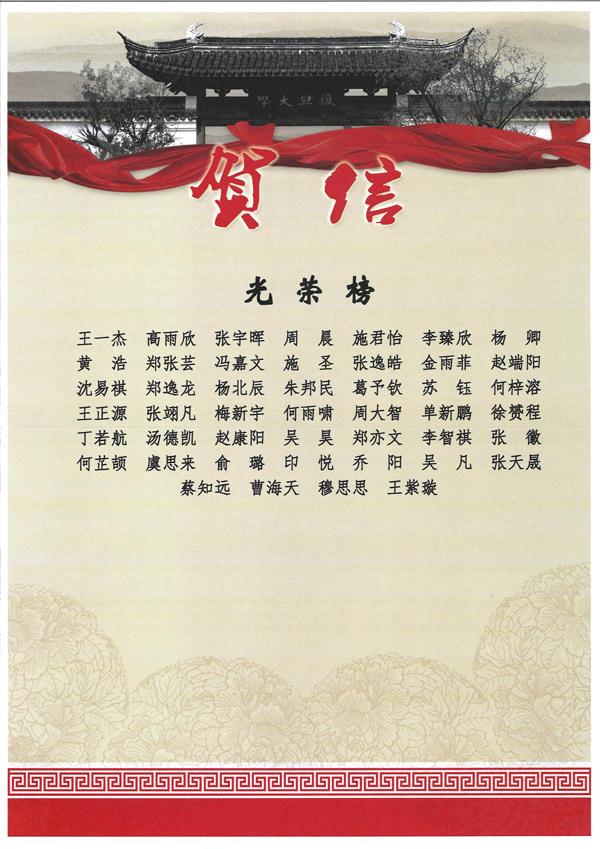 學大旦復
賀信
光荣榜
王一杰 高雨欣 张宇晖 周晨 施君怡 李臻欣 杨卿
黄浩 郑张芸 冯嘉文 施圣 张逸皓 金雨菲 赵端阳
沈易棋 郑逸龙 杨北辰 朱邦民 葛予钦 苏钰 何梓溶
王正源 张翊凡 梅新宇 何雨啸 周大智 单新鹏 徐赟程
丁若航 汤德凯 赵康阳 吴昊 郑亦文 李智祺 张徽
何芷颉 虞思来 俞璐 印悦 乔阳 吴凡 张天晟
蔡知远 曹海天 穆思思 王紫璇